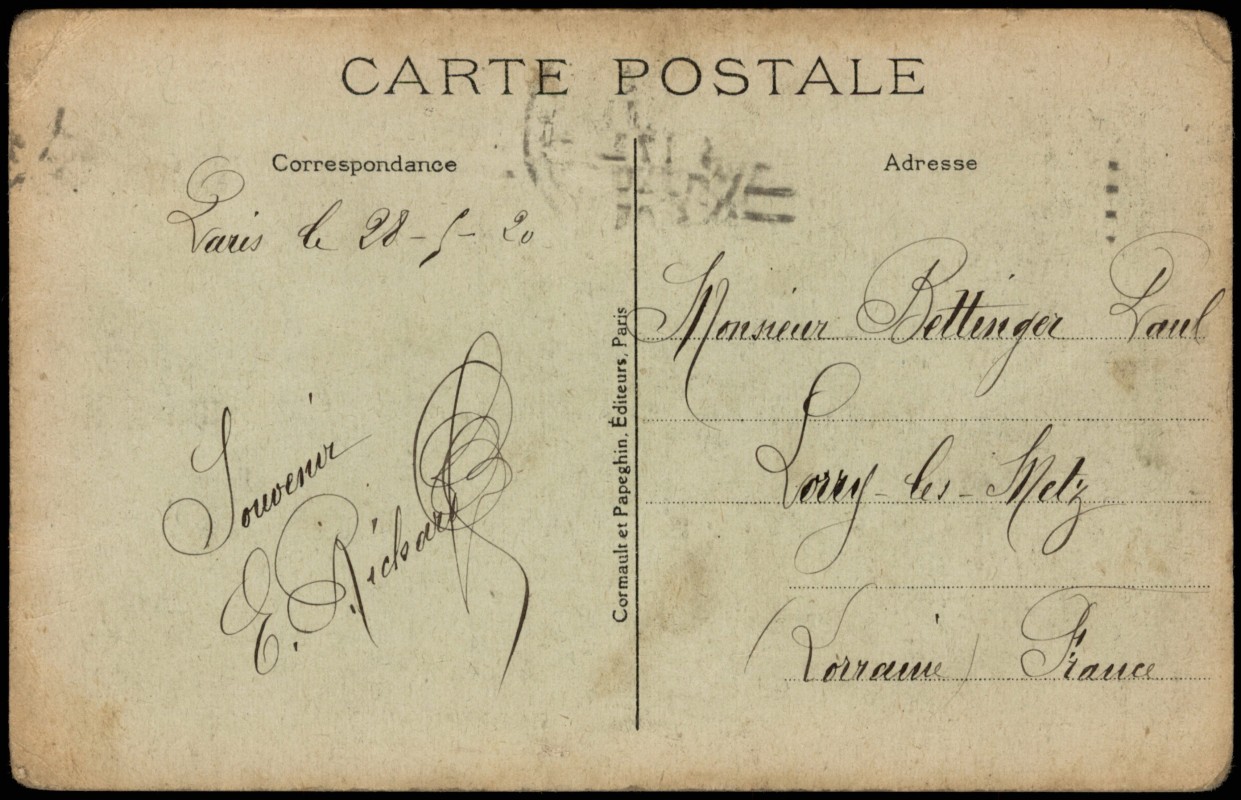 CARTE POSTALE
Correspondance
Paris le 28-5-20
Souvenir
E. Richard
Cormault et Papeghin, Éditeurs, Paris
Adresse
Monsieur Bettinger Paul
Lorry-les-Metz
(Lorraine) France